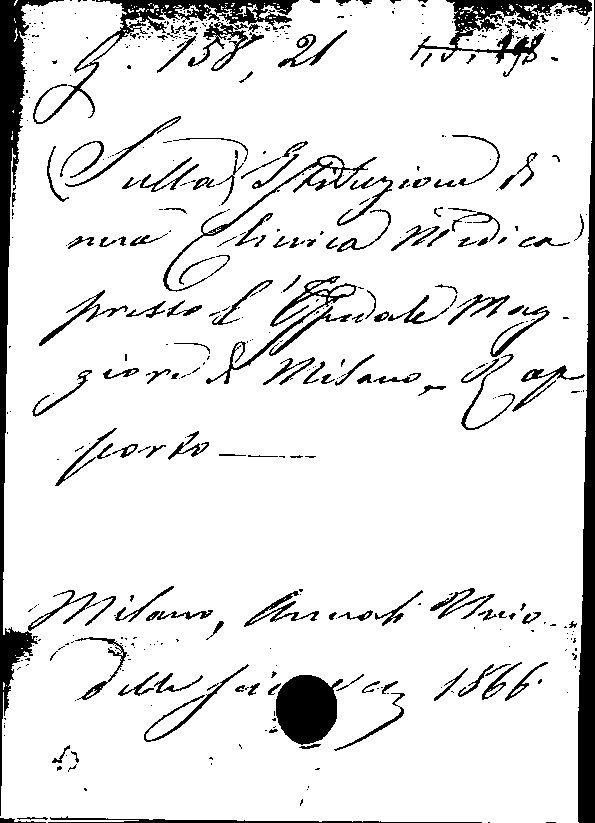 G. 158, 21 1,5,198.
(Sulla) Istituzione di
una Clinica Medica
presso l'Ospedale Mag-
giore di Milano, Rap-
porto
Milano, Annali Univ.
delle 1866.